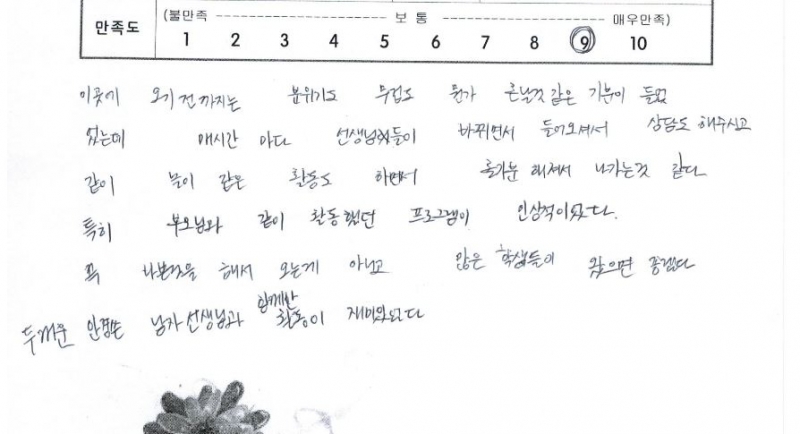 만족도 (불만족 ---------- 보 통 ---------- 매우만족)
1 2 3 4 5 6 7 8 9 10
이곳에 오기 전까지는 분위기도 무겁고 뭔가 큰날것 같은 기분이 들었
었는데 매시간 마다 선생님들이 바뀌면서 들어오셔서 상담도 해주시고
같이 놀이 같은 활동도 하면서 홀가분 해져서 나가는것 같다
특히 부모님과 같이 활동했던 프로그램이 인상적이었다.
꼭 나쁜짓을 해서 오는게 아니고 많은 학생들이 왔으면 좋겠다
두꺼운 안경쓴 남자선생님과 함께한 활동이 재미있었다